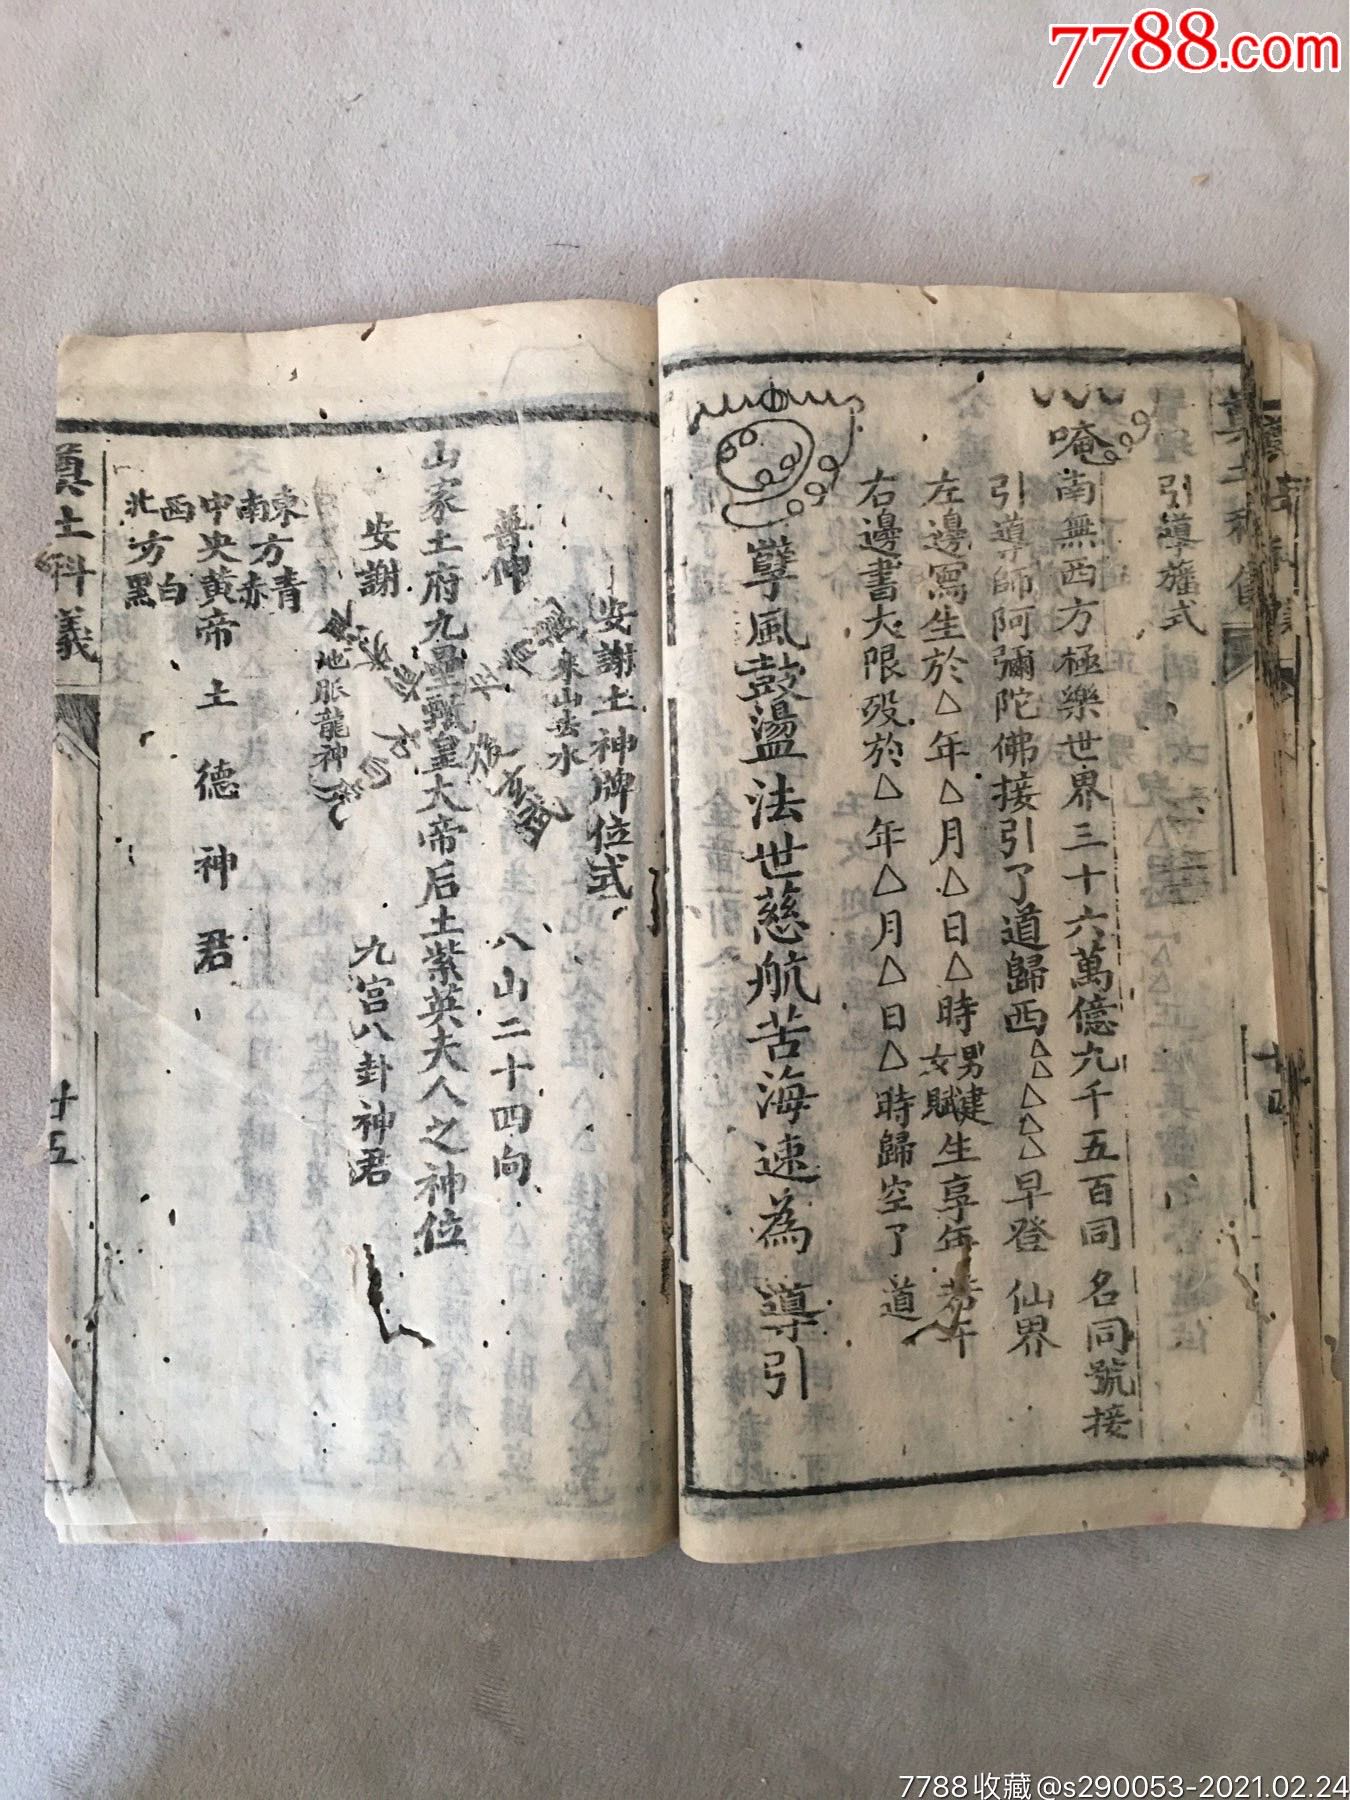 7788.com
引導旛式
唵
南無西方極樂世界三十六萬億九千五百同名同號接
引導師阿彌陀佛接引了道歸西△△△△△早登仙界
左邊寫生於△年△月△日△時男建女賦生享年若干
右邊書大限殁於△年△月△日△時歸空了道
孽風鼓盪法世慈航苦海速為導引
安謝土神牌位式
來山去水
普伸
八山二十四向
山家土府九壘甄皇大帝后土紫英夫人之神位
安謝
九宮八卦神君
地脈龍神
東方青
南赤
中央黃帝土德神君
西白
北方黑
奠土科儀
廿五
7788收藏@s290053-2021.02.24